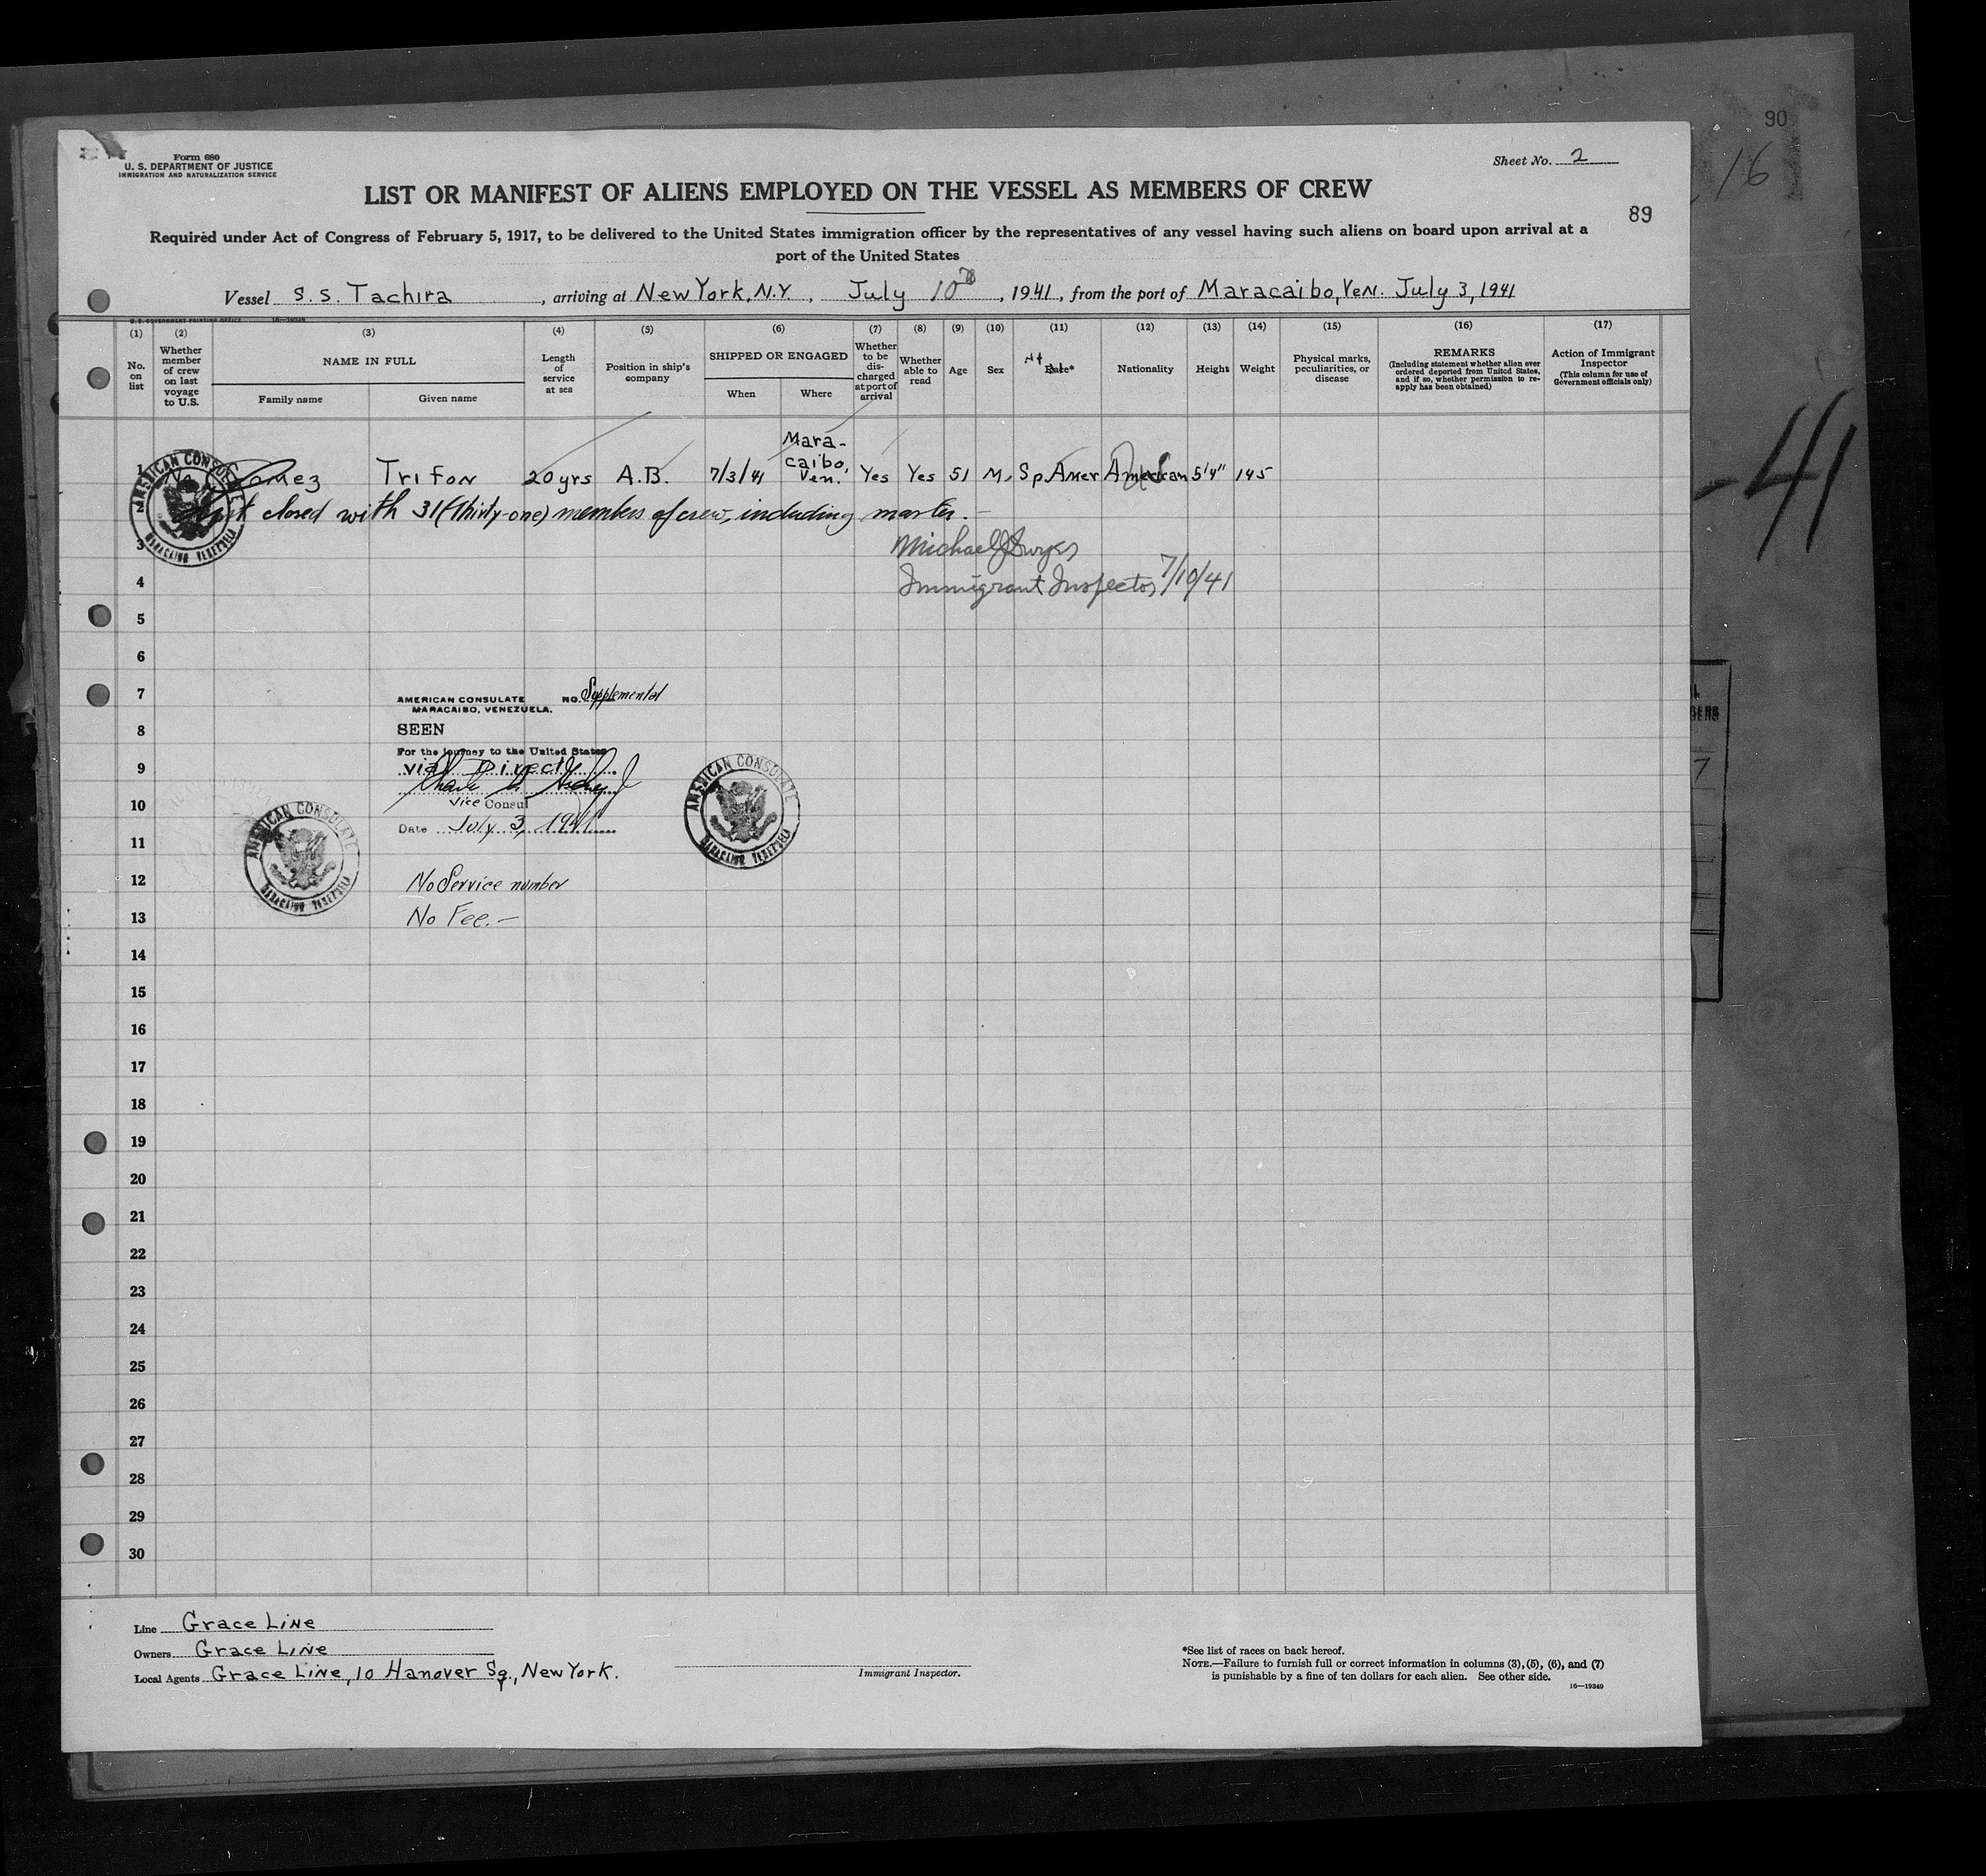 90
16
Form 680
U. S. DEPARTMENT OF JUSTICE
IMMIGRATION AND NATURALIZATION SERVICE
Sheet No. 2
LIST OR MANIFEST OF ALIENS EMPLOYED ON THE VESSEL AS MEMBERS OF CREW
89
Required under Act of Congress of February 5, 1917, to be delivered to the United States immigration officer by the representatives of any vessel having such aliens on board upon arrival at a
port of the United States
Vessel S.S. Tachira, arriving at New York, N.Y., July 10, 1941, from the port of Maracaibo, Ven. July 3, 1941
U. S. GOVERNMENT PRINTING OFFICE 16—19349
(1) (2) (3) (4) (5) (6) (7) (8) (9) (10) (11) (12) (13) (14) (15) (16) (17)
No. on list
Whether member of crew on last voyage to U.S.
NAME IN FULL
Family name
Given name
Length of service at sea
Position in ship's company
SHIPPED OR ENGAGED
When
Where
Whether to be discharged at port of arrival
Whether able to read
Age
Sex
Race*
Nationality
Height
Weight
Physical marks, peculiarities, or disease
REMARKS
(Including statement whether alien ever ordered deported from United States, and if so, whether permission to reapply has been obtained)
Action of Immigrant Inspector
(This column for use of Government officials only)
1 No Gomez Trifon 20 yrs A.B. 7/3/41 Maracaibo, Ven. Yes Yes 51 M. Sp. Amer American 5'4" 145
AMERICAN CONSULATE
MARACAIBO VENEZUELA
2 List closed with 31 (thirty-one) members of crew, including master.
3 Michael J Dwyer
4 Immigrant Inspector 7/10/41
-41
5
6
7
AMERICAN CONSULATE NO. Supplemental
MARACAIBO, VENEZUELA.
8
SEEN
For the journey to the United States
9
via Direct
10
Vice Consul
11
Date July 3, 1941
AMERICAN CONSULATE
MARACAIBO VENEZUELA
AMERICAN CONSULATE
MARACAIBO VENEZUELA
12
No Service number
13
No Fee.—
14
15
16
17
18
19
20
21
22
23
24
25
26
27
28
29
30
Line Grace Line
Owners Grace Line
Local Agents Grace Line, 10 Hanover Sq., New York.
Immigrant Inspector.
*See list of races on back hereof.
NOTE.—Failure to furnish full or correct information in columns (3), (5), (6), and (7)
is punishable by a fine of ten dollars for each alien. See other side.
16—19349